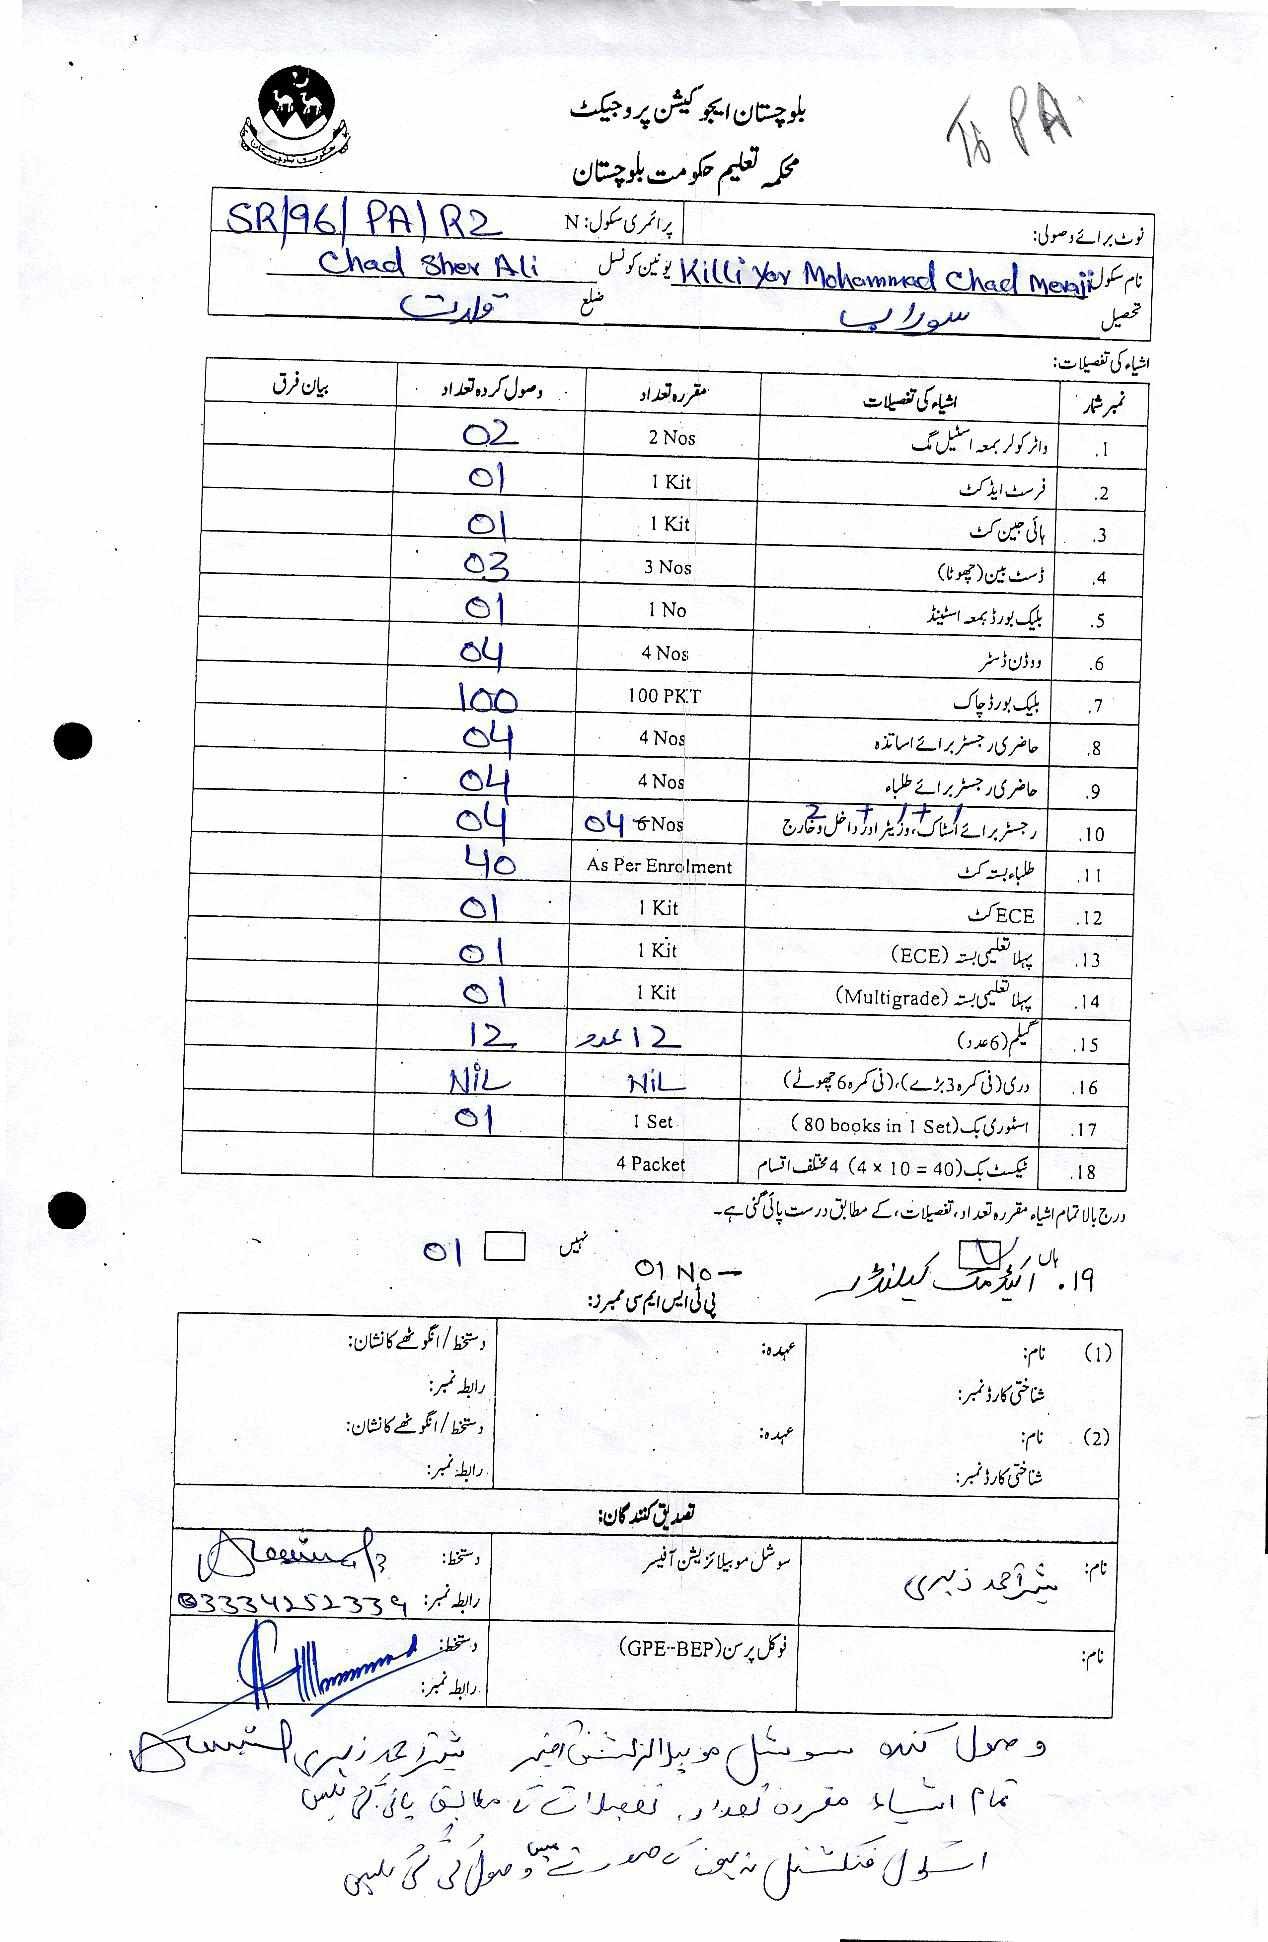 To PA
بلوچستان ایجوکیشن پروجیکٹ
محکمہ تعلیم حکومت بلوچستان
نوٹ برائے وصولی: پرائمری سکول: N SR/96/PA/R2
نام سکول Killi Yar Mohammad Chad Meraji یونین کونسل Chad Sher Ali
تحصیل سوراب ضلع قلات
اشیاء کی تفصیلات:
نمبر شمار اشیاء کی تفصیلات مقررہ تعداد وصول کردہ تعداد بیان فرق
1. واٹر کولر بمعہ اسٹیل گ 2 Nos 02
2. فرسٹ ایڈ کٹ 1 Kit 01
3. ہائی جین کٹ 1 Kit 01
4. ڈسٹ بین (چھوٹا) 3 Nos 03
5. بلیک بورڈ بمعہ اسٹینڈ 1 No 01
6. ووڈن ڈسٹر 4 Nos 04
7. بلیک بورڈ چاک 100 PKT 100
8. حاضری رجسٹر برائے اساتذہ 4 Nos 04
9. حاضری رجسٹر برائے طلباء 4 Nos 04
2 + 1 + 1
10. رجسٹر برائے اسٹاک، وزیٹر اور داخل و خارج 04 6 Nos 04
11. طلباء بستہ کٹ As Per Enrolment 40
12. ECE کٹ 1 Kit 01
13. پہلا تعلیمی بستہ (ECE) 1 Kit 01
14. پہلا تعلیمی بستہ (Multigrade) 1 Kit 01
15. گلیم (6 عدد) 12 عدد 12
16. دری (فی کمرہ 3 بڑے)، (فی کمرہ 6 چھوٹے) NiL NiL
17. اسٹوری بک (80 books in 1 Set) 1 Set 01
18. ٹیکسٹ بک (4 × 10 = 40) 4 مختلف اقسام 4 Packet
درج بالا تمام اشیاء مقررہ تعداد، تفصیلات، کے مطابق درست پائی گئی ہے۔
ہاں نہیں
19. اکیڈمک کیلنڈر 01 No - 01
پی ٹی ایس ایم سی ممبرز:
(1) نام: عہدہ: دستخط / انگوٹھے کا نشان:
شناختی کارڈ نمبر: رابطہ نمبر:
(2) نام: عہدہ: دستخط / انگوٹھے کا نشان:
شناختی کارڈ نمبر: رابطہ نمبر:
تصدیق کنندگان:
نام: احمد زہری سوشل موبیلائزیشن آفیسر دستخط:
رابطہ نمبر: 03334252339
نام: فوکل پرسن (GPE-BEP) دستخط:
رابطہ نمبر:
وصول کنندہ سوشل موبیلائزیشن آفیسر احمد زہری
تمام اشیاء مقررہ تعداد، تفصیلات کے مطابق پائی گئی ہیں
اسکول فنکشنل نہ ہونے کے صورت میں وصول کی گئی ہیں